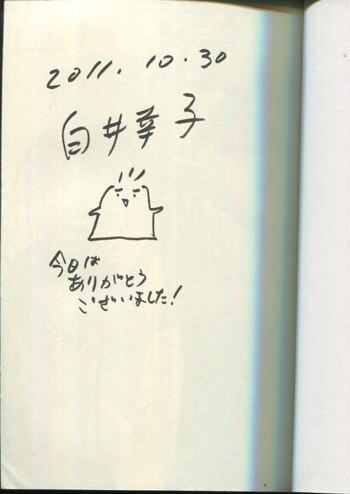 2011.10.30
白井華子
今日は
ありがとう
ございました!